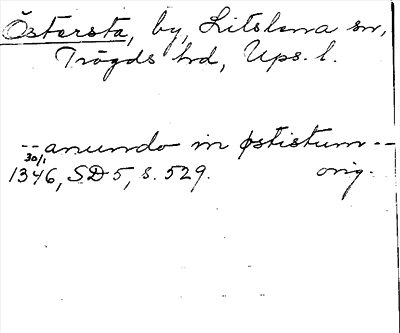 Östersta, by, Litslena sn,
Trögds hd, Ups. l.
-- anundo in østistum --
30/1
1346, SD 5, s. 529. orig.